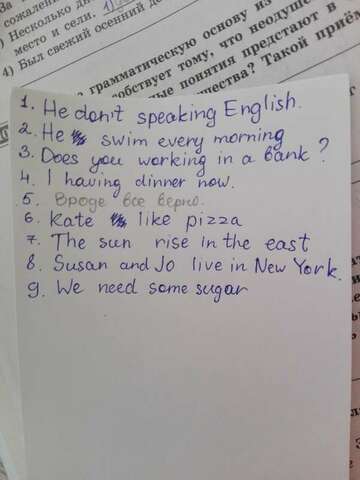 сожален
Несколько дн
место и сели. 1)
4) Был свежий осенний де
грамматическую основу из
собствует тому, что неодуше
ные понятия предстают в
щества? Такой приём
1. He don't speaking English.
2. He swim every morning
3. Does you working in a bank?
4. I having dinner now.
5. Вроде все верно.
6. Kate like pizza
7. The sun rise in the east
8. Susan and Jo live in New York.
9. We need some sugar